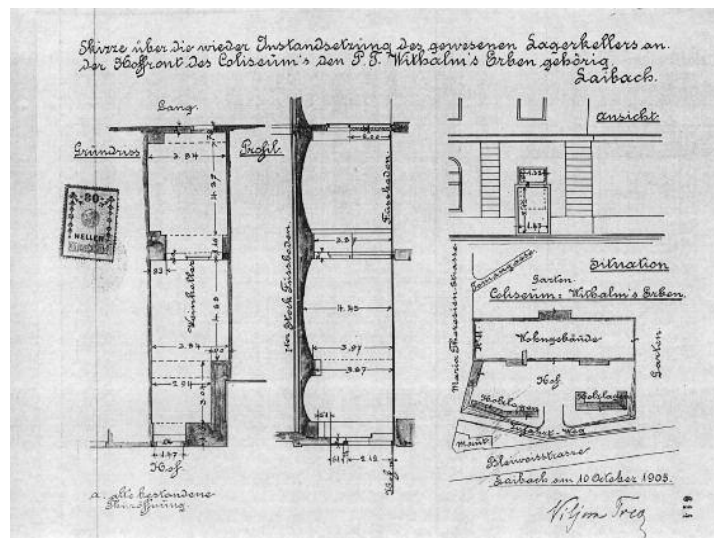 Skizze über die wieder Instandsetzung des gewesenen Lagerkellers an
der Hoffront des Coliseum's den P. T. Withalm's Erben gehörig
Laibach.
Gang.
Grundriss
Profil.
80
HELLER
2.84
Weinkeller
2.84
2.94
1.47
Hof.
a. alte bestandene
Thüröffnung.
Iter Stock Fussboden.
Fussboden.
3.97
3.67
2.12
Hof
Ansicht.
1.47
Situation
Garten.
Coliseum: Withalm's Erben.
Maria Theresien-Strasse
Wohngebäude
Garten
Hof.
Holzlage
Holzlage
Zufahrt-Weg
Maut
Bleiweisstrasse
Laibach am 10 October 1903.
Viljem Treo
614